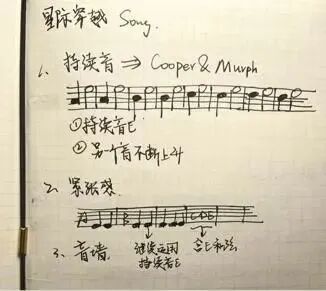 星际穿越 Song.
1. 持续音 ⇒ Cooper & Murph
①持续音E
②另一个音不断上升
2. 紧张感
A B CDE
继续运用 含E和弦
持续音E
3. 音墙